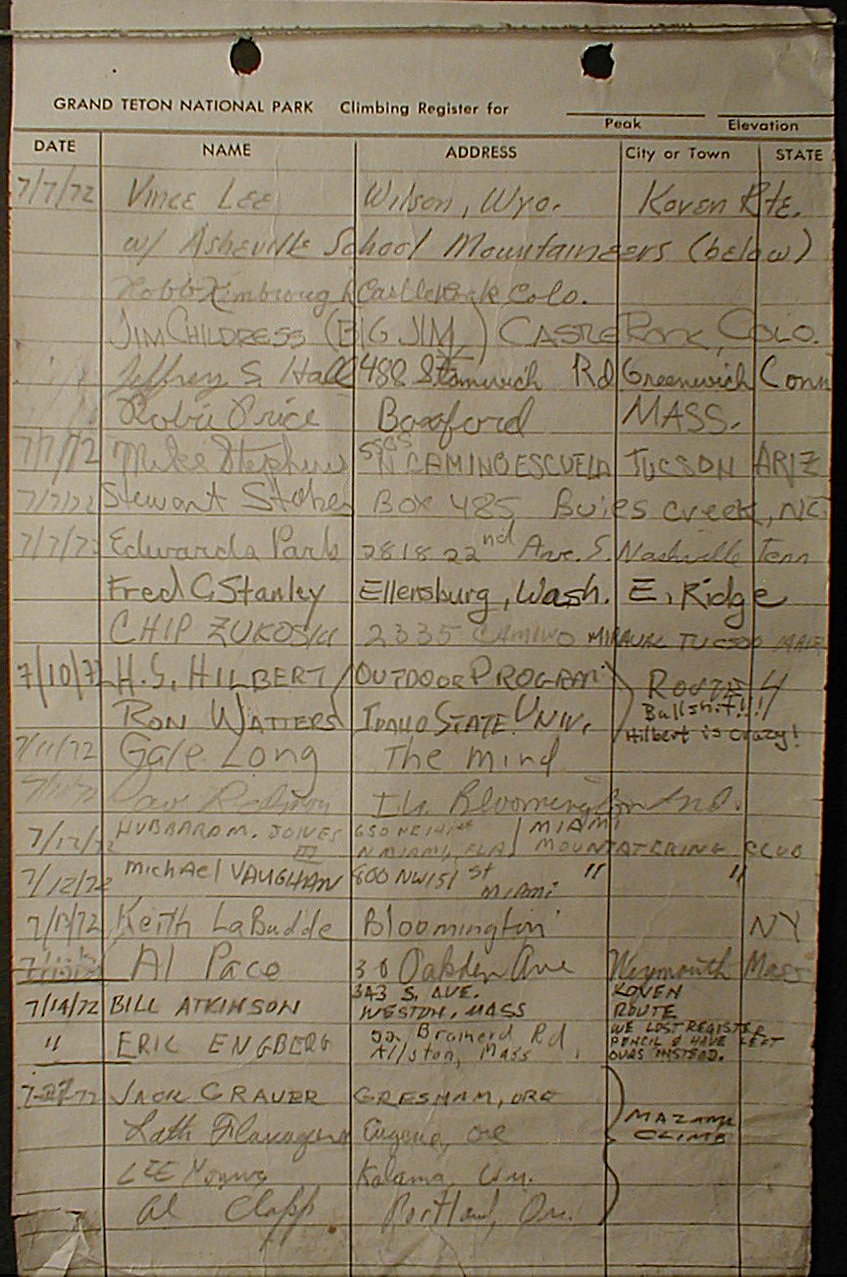 GRAND TETON NATIONAL PARK Climbing Register for
Peak Elevation
DATE NAME ADDRESS City or Town STATE
7/7/72 Vince Lee Wilson, Wyo. Koven Rte.
w/ Asheville School Mountaineers (below)
Robb Kimbrough Castle Rock Colo.
JIM CHILDRESS (BIG JIM) CASTLE ROCK, COLO.
Jeffrey S. Hall 488 Stanwich Rd Greenwich Conn
Robie Price Boxford MASS.
7/7/72 Mike Stephens N CAMINO ESCUELA TUCSON ARIZ
7/7/72 Stewart Stokes BOX 485 Buies Creek, NC
7/7/72 Edwards Park 2818 22nd Ave. S. Nashville Tenn
Fred C. Stanley Ellensburg, Wash. E. Ridge
CHIP ZUKOSKI 2335 CAMINO MIRAVAL TUCSON
7/10/72 H.S. HILBERT OUTDOOR PROGRAM ROUTE 4
RON WATTERS IDAHO STATE UNIV. Bullshit!!!
Hilbert is crazy!
7/11/72 Gale Long The Mind
I.U. Bloomington Ind.
7/12/72 HUBBARD M. JONES III 650 NE 141st MIAMI
N MIAMI, FLA MOUNTAINEERING CLUB
7/12/72 Michael VAUGHAN 800 NW 151 st " "
MIAMI
7/13/72 Keith LaBudde Bloomington NY
Al Pace 38 Oakden Ave Weymouth Mass
7/14/72 BILL ATKINSON 343 S. AVE. KOVEN
WESTON, MASS ROUTE
" ERIC ENGBERG 52 Brainerd Rd. WE LOST REGISTER
Allston, Mass PENCIL & HAVE LEFT
OURS INSTEAD.
7-27-72 JACK GRAUER GRESHAM, ORE MAZAMA
Lath Flanagan Eugene, Ore CLIMB
LEE Young Kalama, Wn.
Al Clapp Portland, Ore.